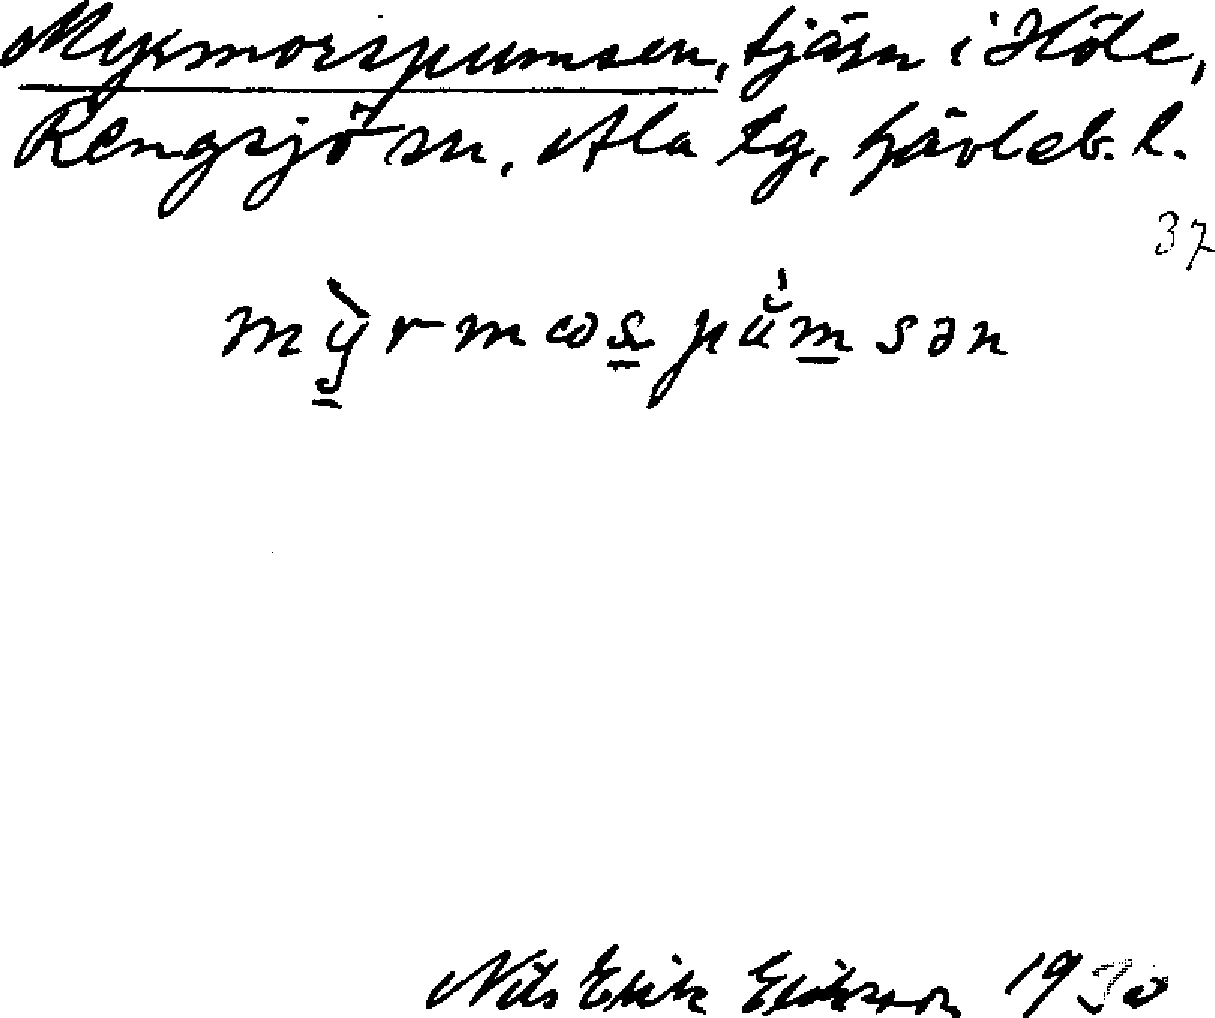 Myrmorspumsen, tjärn i Höle,
Rengsjö sn, Ala tg, Gävleb. l.
37
mỳrmωs pu̇msən
Nils Erik Eriksson 1930